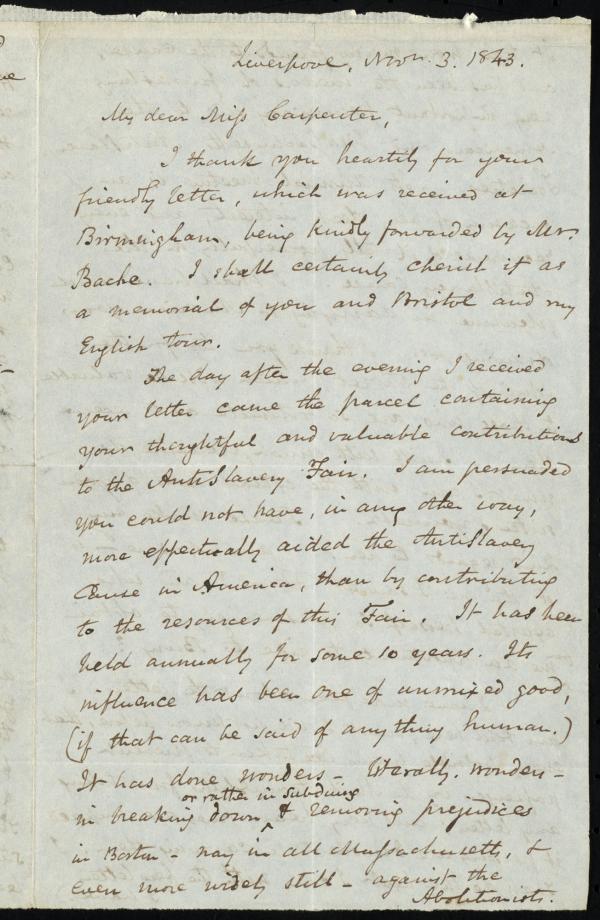 Liverpool, Novr. 3. 1843.
My dear Miss Carpenter,
I thank you heartily for your
friendly letter, which was received at
Birmingham, being kindly forwarded by Mr.
Bache. I shall certainly cherish it as
a memorial of you and Bristol and my
English tour.
The day after the evening I received
your letter came the parcel containing
your thoughtful and valuable contributions
to the AntiSlavery Fair. I am persuaded
you could not have, in any other way,
more effectually aided the AntiSlavery
Cause in America, than by contributing
to the resources of this Fair. It has been
held annually for some 10 years. Its
influence has been one of unmixed good,
(if that can be said of any thing human.)
It has done wonders - literally, wonders -
or rather in subduing
in breaking down ^ & removing prejudices
in Boston - nay in all Massachusetts, &
even more widely still - against the
Abolitionists.